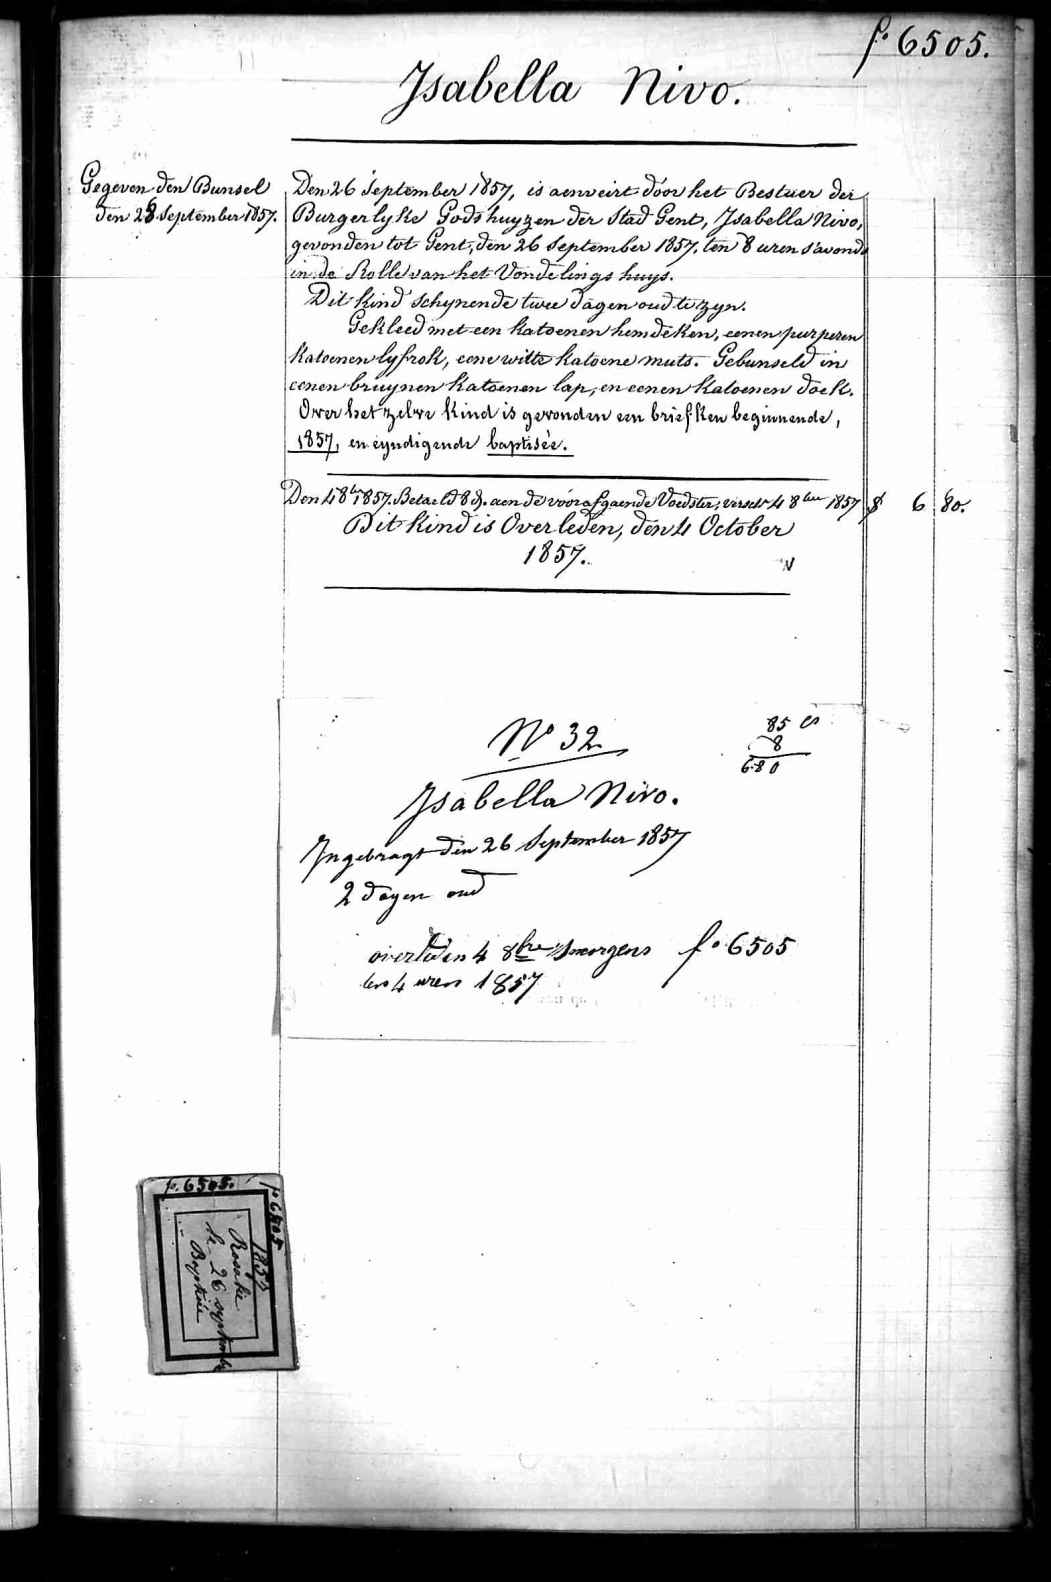 fo. 6505.
Isabella Nivo.
Gegeven den Bunsel
den 28 September 1857.
Den 26 September 1857, is aenveirt door het Bestuer der
Burgerlyke Godshuyzen der Stad Gent, Isabella Nivo,
gevonden tot Gent, den 26 September 1857, ten 8 uren s'avonds
in de Rolle van het Vondelingshuys.
Dit kind schynende twee dagen oud te zyn.
Gekleed met een katoenen hemdeken, eenen purperen
katoenen lyfrok, eene witte katoene muts. Gebunseld in
eenen bruynen katoenen lap, en eenen katoenen doek.
Over het zelve kind is gevonden een briefken beginnende,
1857, en eyndigende baptisée.
Den 4 8ber 1857. Betaeld 8 d. aen de voorafgaende Voedster, 4 8ber 1857 8 6 80.
Dit kind is Overleden, den 4 October
1857.
No 32
85 cs
8
680
Isabella Nivo.
Ingebragt den 26 September 1857
2 dagen oud
overleden 4 8bre smorgens fo 6505
ten 4 uren 1857
fo. 6505.
fo 6505
1857
Rosalie
le 26 septembre
Baptisée